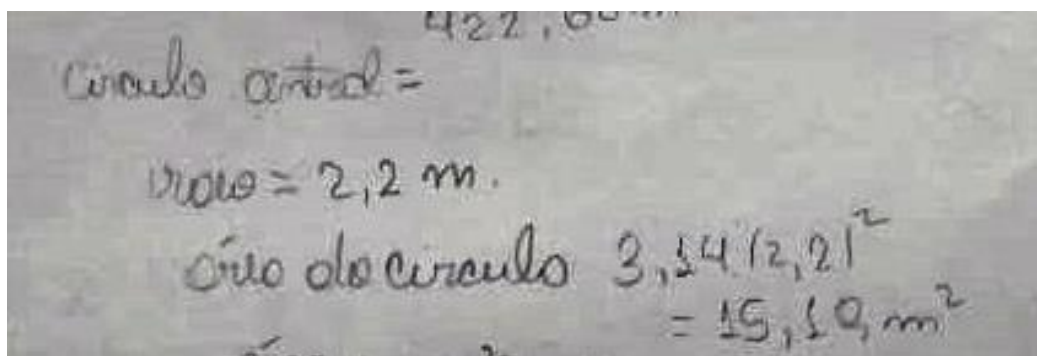 circulo central =
raio = 2,2 m.
área do circulo 3,14 (2,2)²
= 15,19 m²